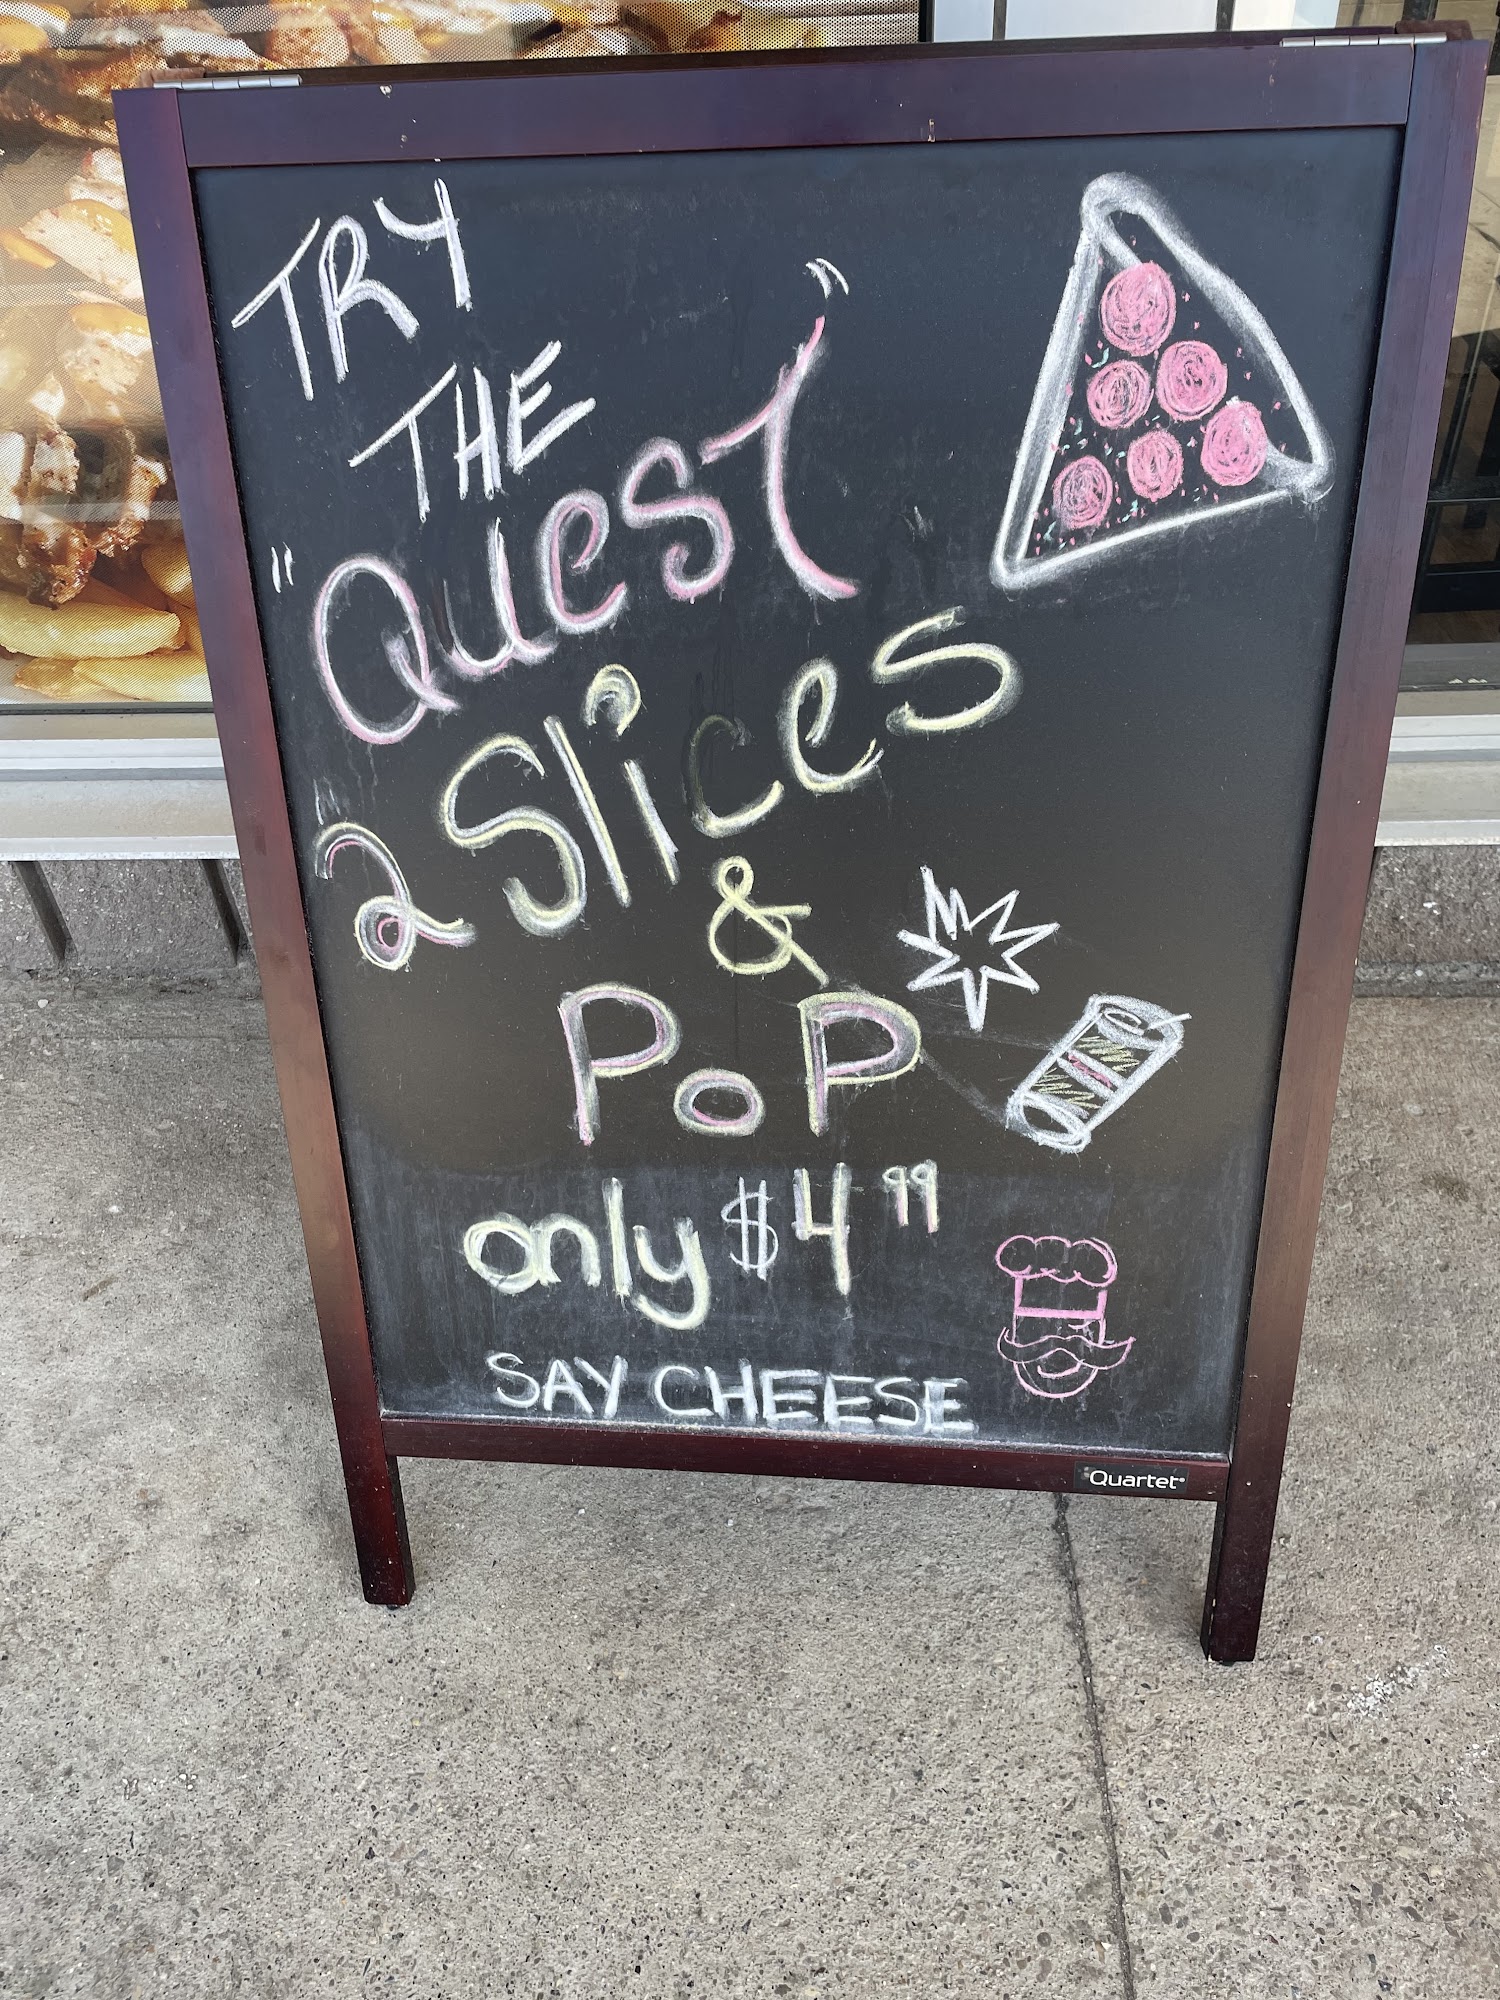 TRY
THE
"QUEST"
2 Slices
&
POP
only $4.99
SAY CHEESE
Quartet